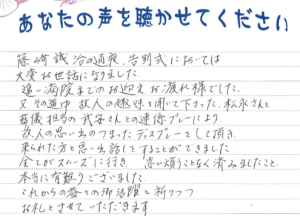 あなたの声を聴かせてください
篠崎誠治の通夜、告別式においては
大変お世話になりました。
遠い病院までのお迎えお疲れ様でした。
又その道中、故人の趣味を聞いて下さった、松永さんと
葬儀担当の武安さんとの連係プレーにより
故人の思い出のつまったディスプレーとして頂き、
来られた方と思い出話しをすることができました。
全てがスムーズに行き、思い煩うことなく済みましたこと
本当に有難うございました。
これからの益々の御活躍と祈りつつ
お礼とさせていただきます。